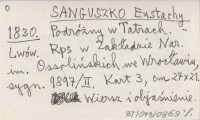 SANGUSZKO Eustachy
1830. Podróżny w Tatrach. -
Lwów. Rps w Zakładzie Nar.
im. Ossolińskich we Wrocławiu,
sygn. 9897/II. Kart 3, cm 27x21.
Wiersz i objaśnienie.